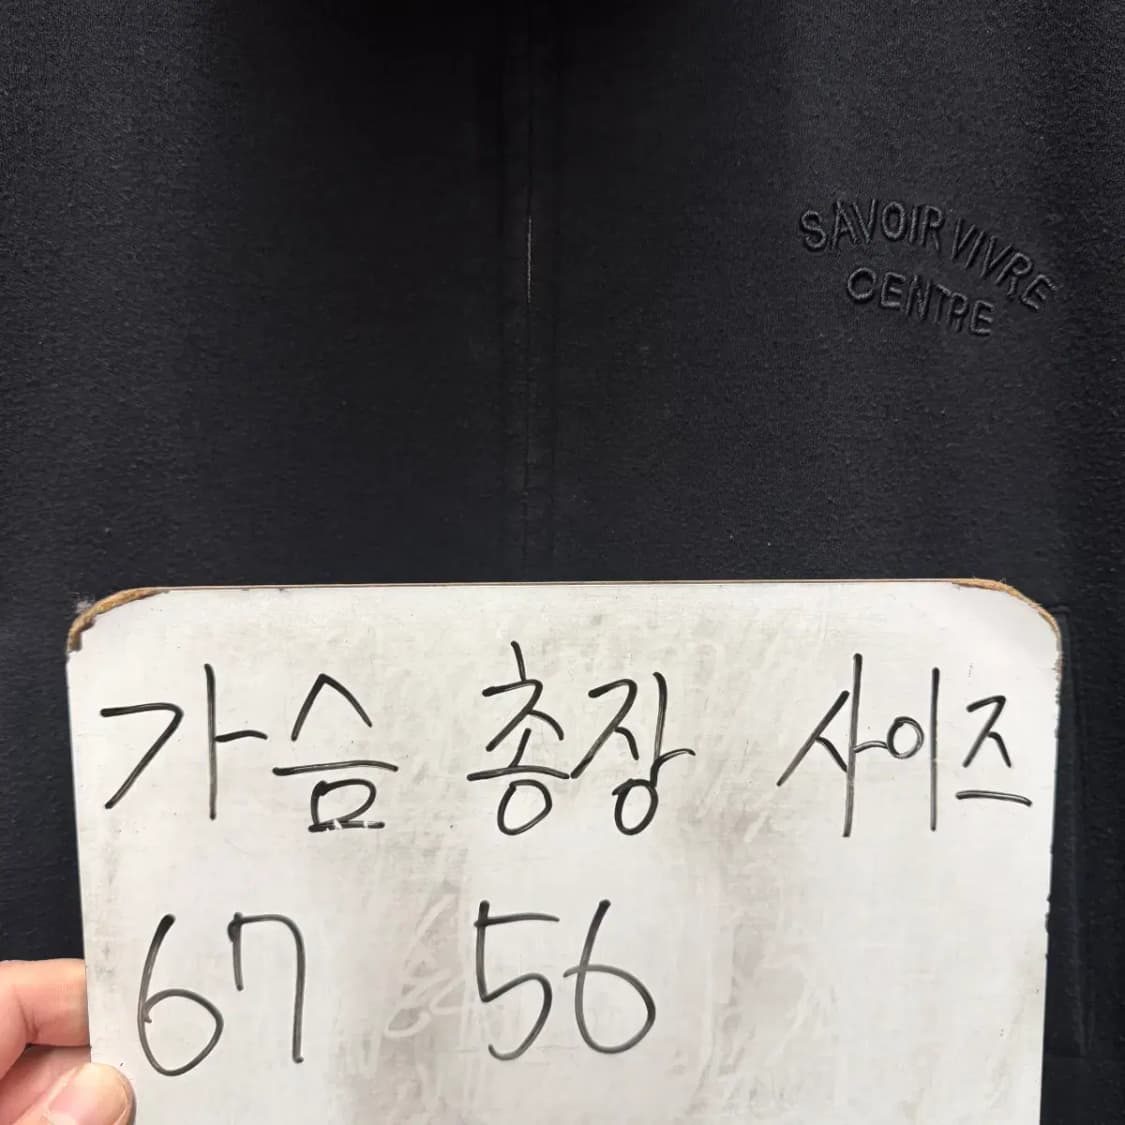 SAVOIR VIVRE
CENTRE
가슴 총장 사이즈
67 56